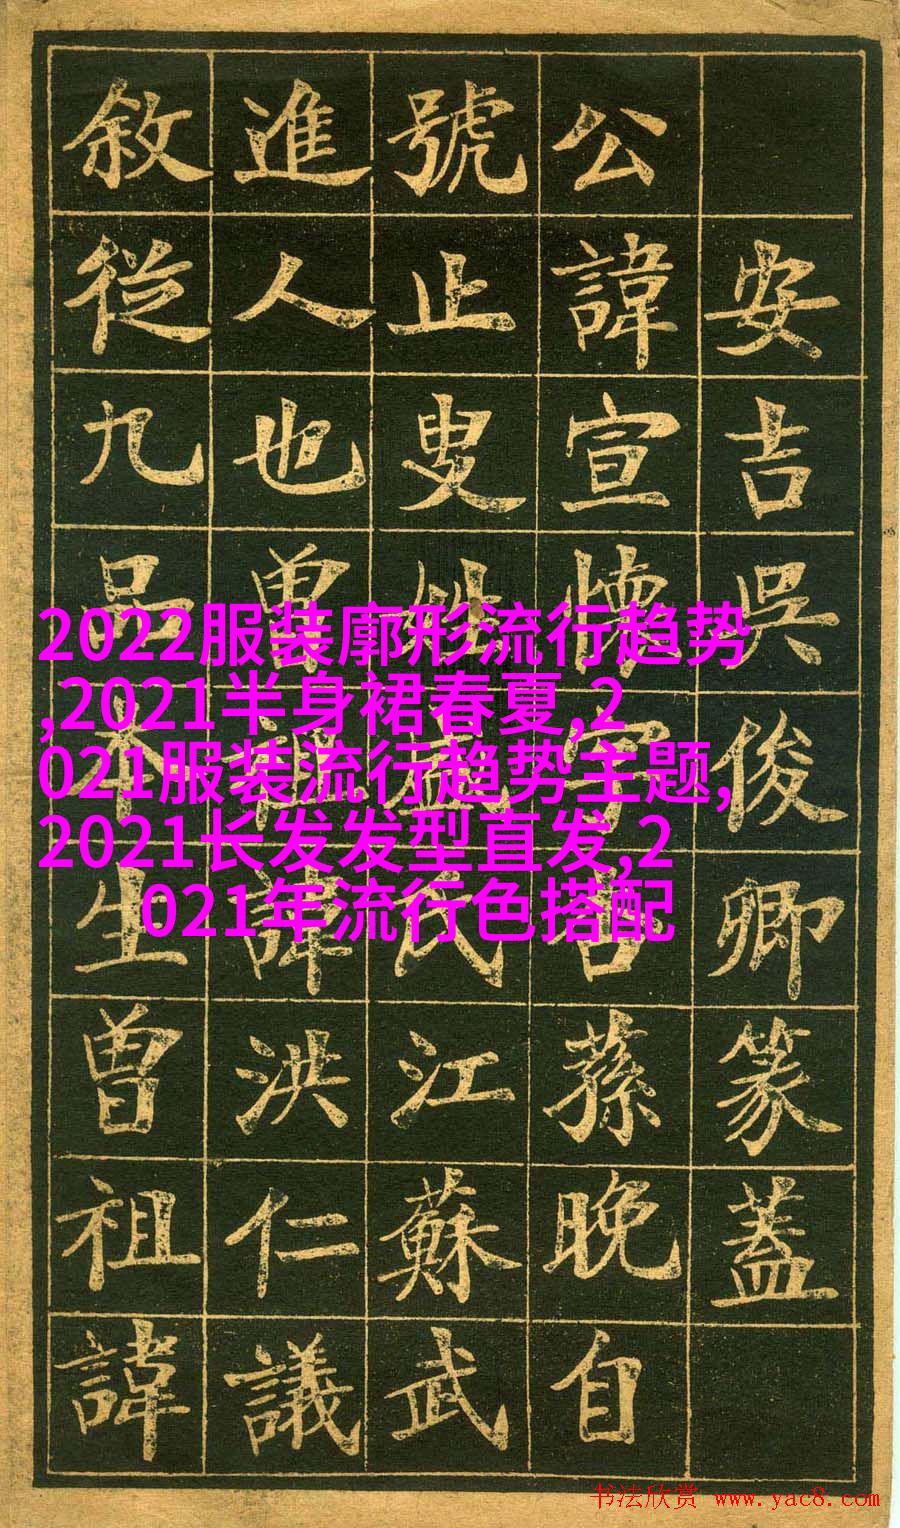 安吉吳俊卿篆蓋
公諱宣懷字杏蓀晚自
號止叟姓盛氏江蘇武
進人也曾祖諱洪仁議
敘從九品本生曾祖諱
2022服装廓形流行趋势
,2021半身裙春夏,2
021服装流行趋势主题,
2021长发发型直发,2
021年流行色搭配
书法欣赏 www.yac8.com